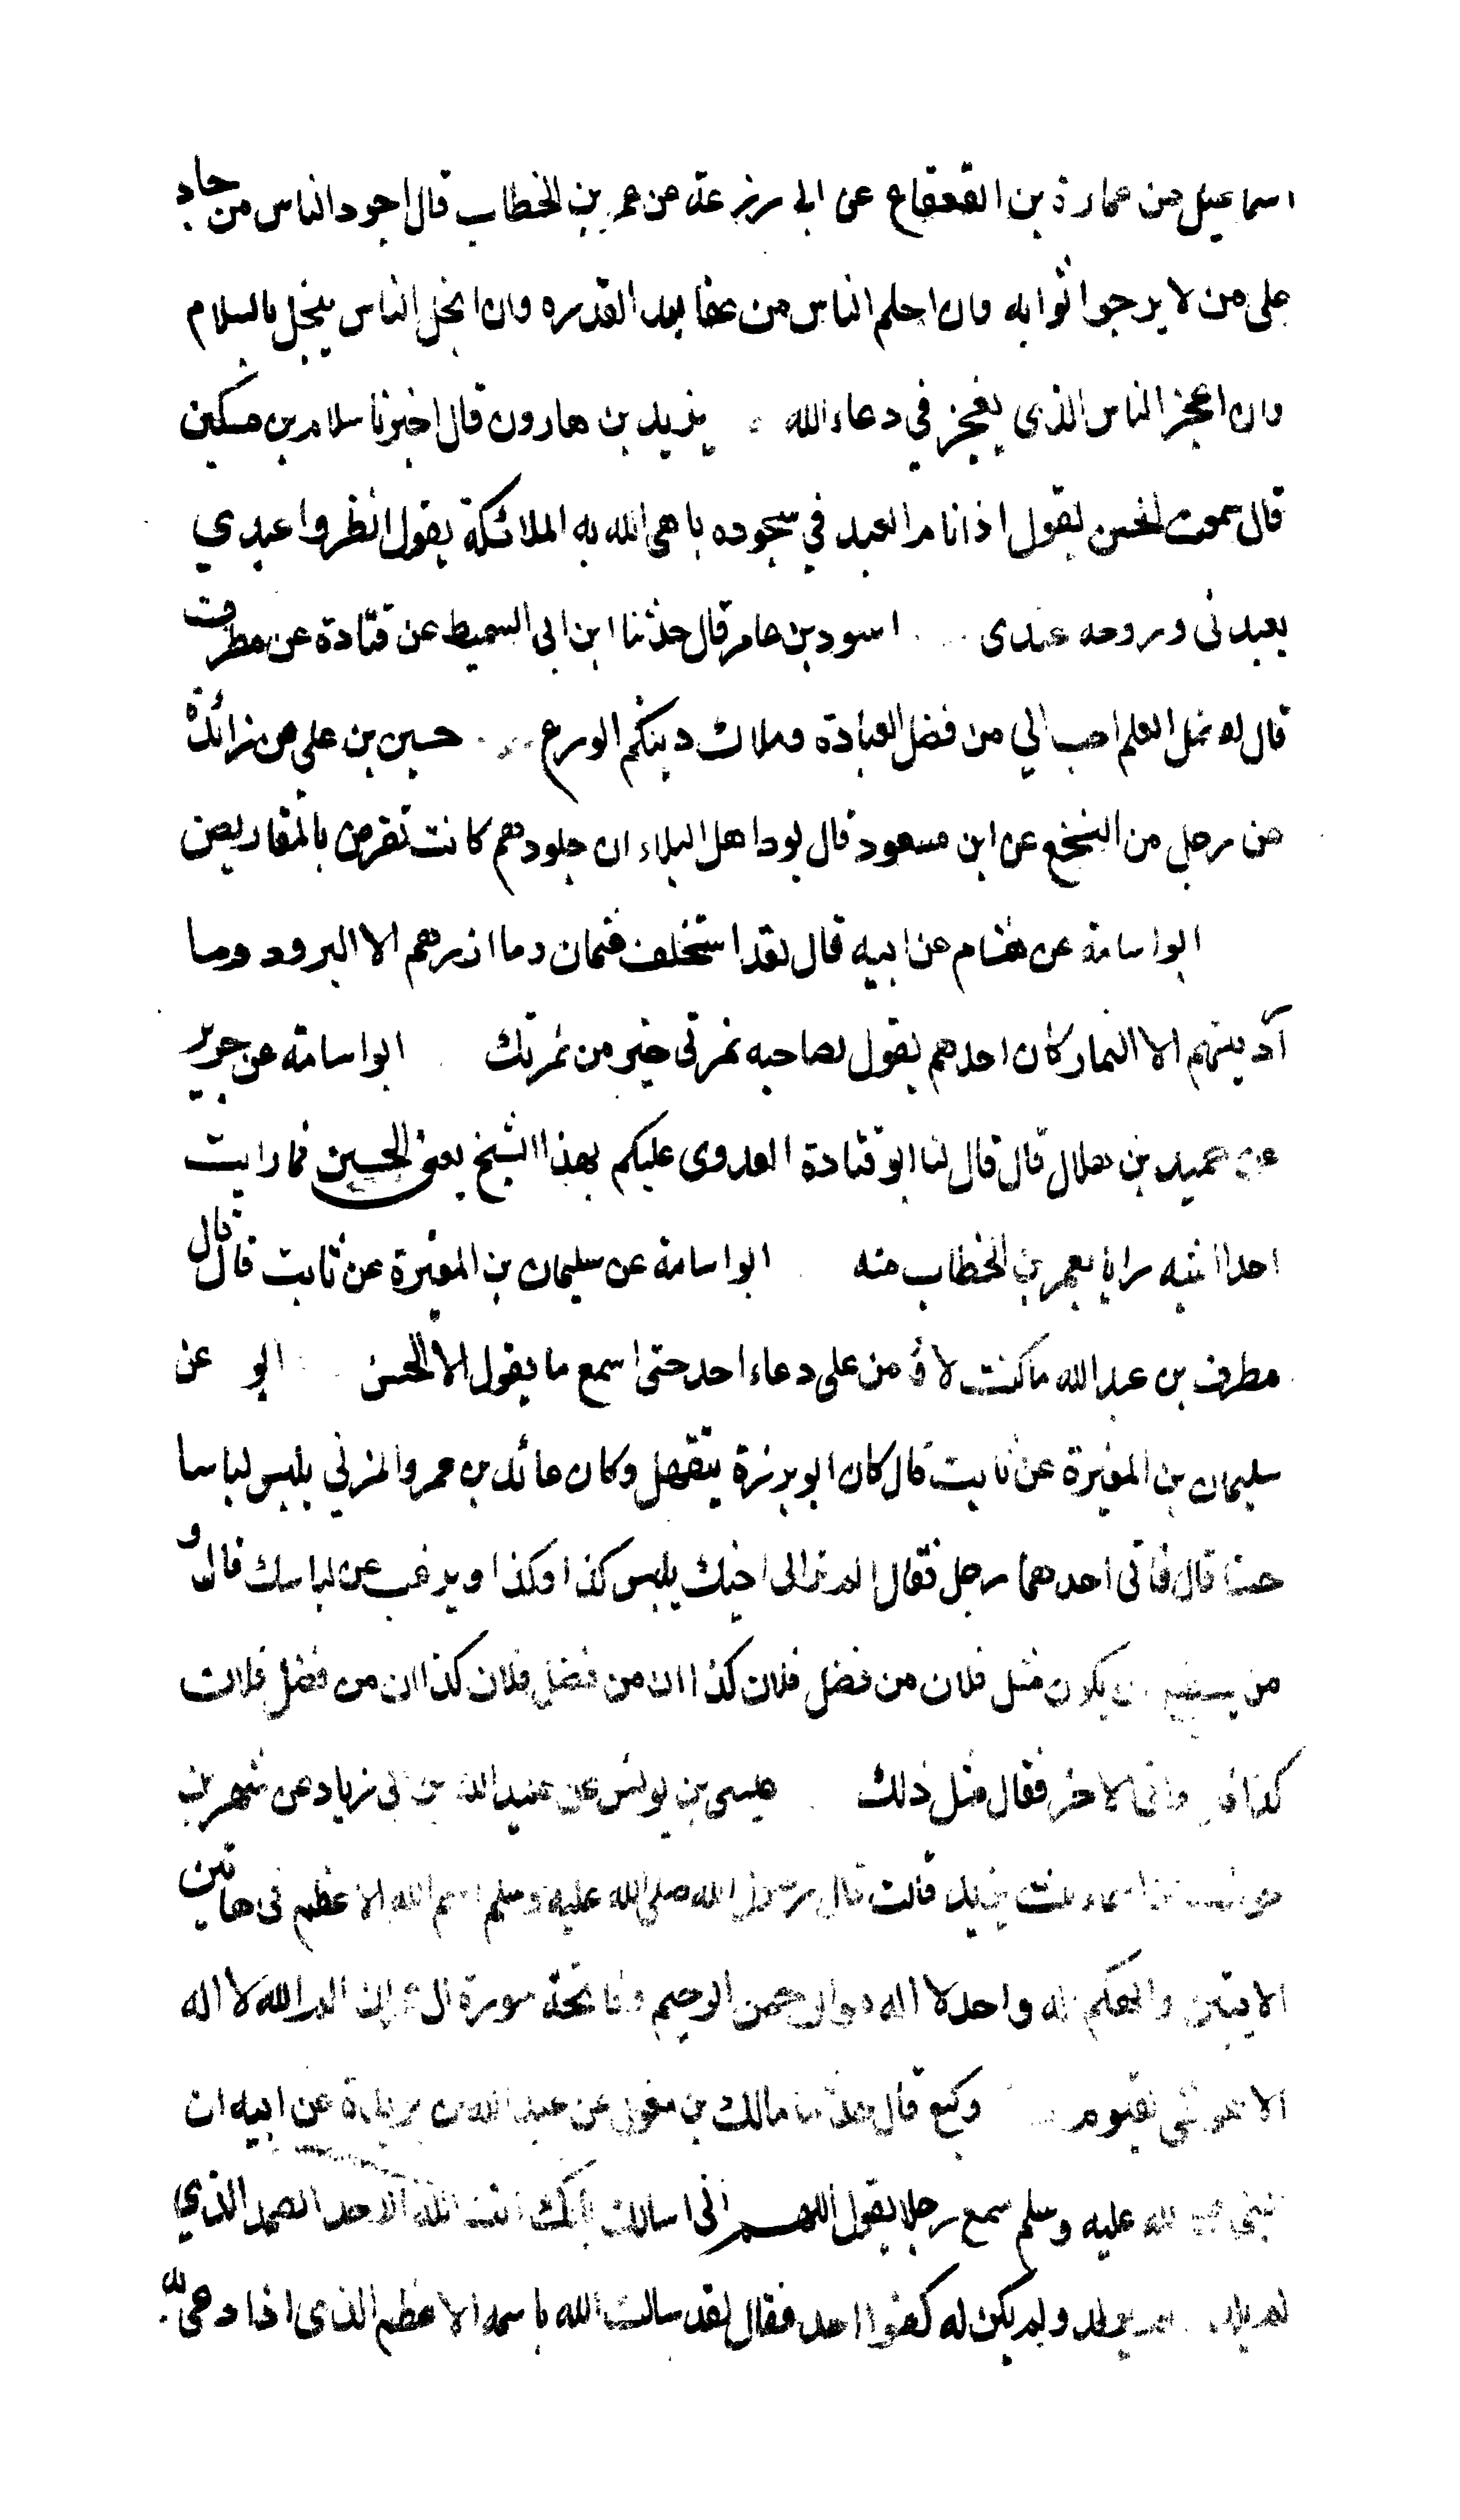 اسماعيل عن عمارة بن القعقاع عن ابى زرعة عن عمر بن الخطاب قال اجود الناس من جاد
على من لا يرجوا ثوابه وان احلم الناس من عفا بعد القدره وان ابخل الناس يبخل بالسلام
وان اعجز الناس الذى يعجز في دعاء الله يزيد بن هارون قال اخبرنا سلام بن مسكين
قال سمعت الحسن يقول اذا نام العبد في سجوده باهى الله به الملائكة يقول انظروا عبدي
يعبدنى وروحه عندى اسود بن عامر قال حدثنا ابن ابى السميط عن قتادة عن مطرف
قال فضل العلم احب الي من فضل العبادة وملاك دينكم الورع حسين بن علي عن زائدة
عن رجل من النخع عن ابن مسعود قال لودا هل البلاء ان جلودهم كانت تقرض بالمقاريض
ابو اسامة عن هشام عن ابيه قال لقد استخلف عثمان وما ازرهم الا البرود وما
آرديتهم الا النمار كان احدهم يقول لصاحبه نمرتى خير من نمرتك ابو اسامة عن جرير
عن حميد بن هلال قال قال لنا ابو قتادة العدوى عليكم بهذا الشيخ يعنى الحسن فما رايت
احدا اشبه رايا بعمر بن الخطاب منه ابو اسامة عن سليمان بن المغيرة عن ثابت قال قال
مطرف بن عبد الله ما كنت لاؤمن على دعاء احد حتى اسمع ما يقول الا الحسن ابو عن
سليمان بن المغيرة عن ثابت قال كان ابو برزة يتقهل وكان عائذ بن عمرو المزني يلبس لباسا
حسنا قال فاتى احدهما رجل فقال الم تر الى اخيك يلبس كذا وكذا ويرغب عن لباسك قال و
من يستطيع ان يكون مثل فلان من فضل فلان كذا ان من فضل فلان كذا ان من فضل فلان
كذا واتى الاخر فقال مثل ذلك عيسى بن يونس عن عبيد الله بن ابى زياد عن شهر بن
حوشب عن اسماء بنت يزيد قالت قال رسول الله صلى الله عليه وسلم اسم الله الاعظم فى هاتين
الايتين والهكم اله واحد لا اله هو الرحمن الرحيم وفاتحة سورة ال عمران الم الله لا اله
الا هو الحي القيوم وكيع قال حدثنا مالك بن مغول عن عبد الله بن بريدة عن ابيه ان
النبى صلى الله عليه وسلم سمع رجلا يقول اللهم انى اسالك بانك انت الله الاحد الصمد الذي
لم يلد ولم يولد ولم يكن له كفوا احد فقال لقد سالت الله باسمه الاعظم الذى اذا دعى الله